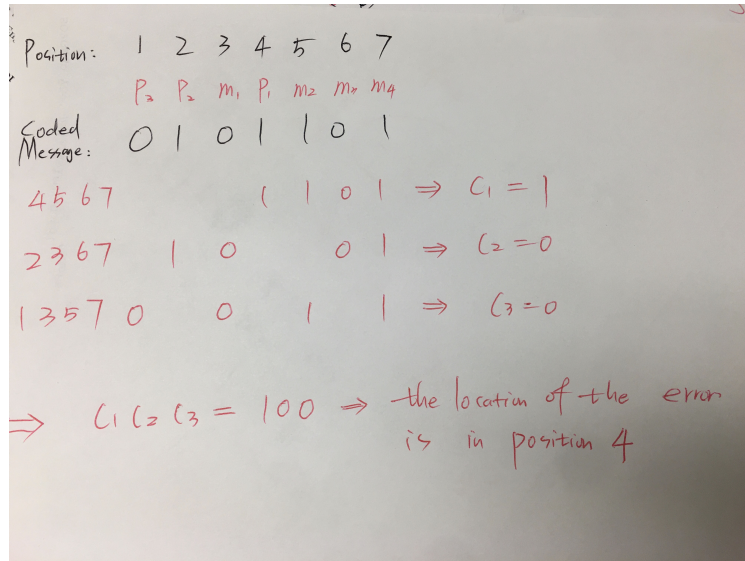 Position: 1 2 3 4 5 6 7
P₃ P₂ m₁ P₁ m₂ m₃ m₄
Coded
Message: 0 1 0 1 1 0 1
4567 1 1 0 1 ⇒ C₁ = 1
2367 1 0 0 1 ⇒ C₂ = 0
1357 0 0 1 1 ⇒ C₃ = 0
⇒ C₁ C₂ C₃ = 100 ⇒ the location of the error
is in position 4